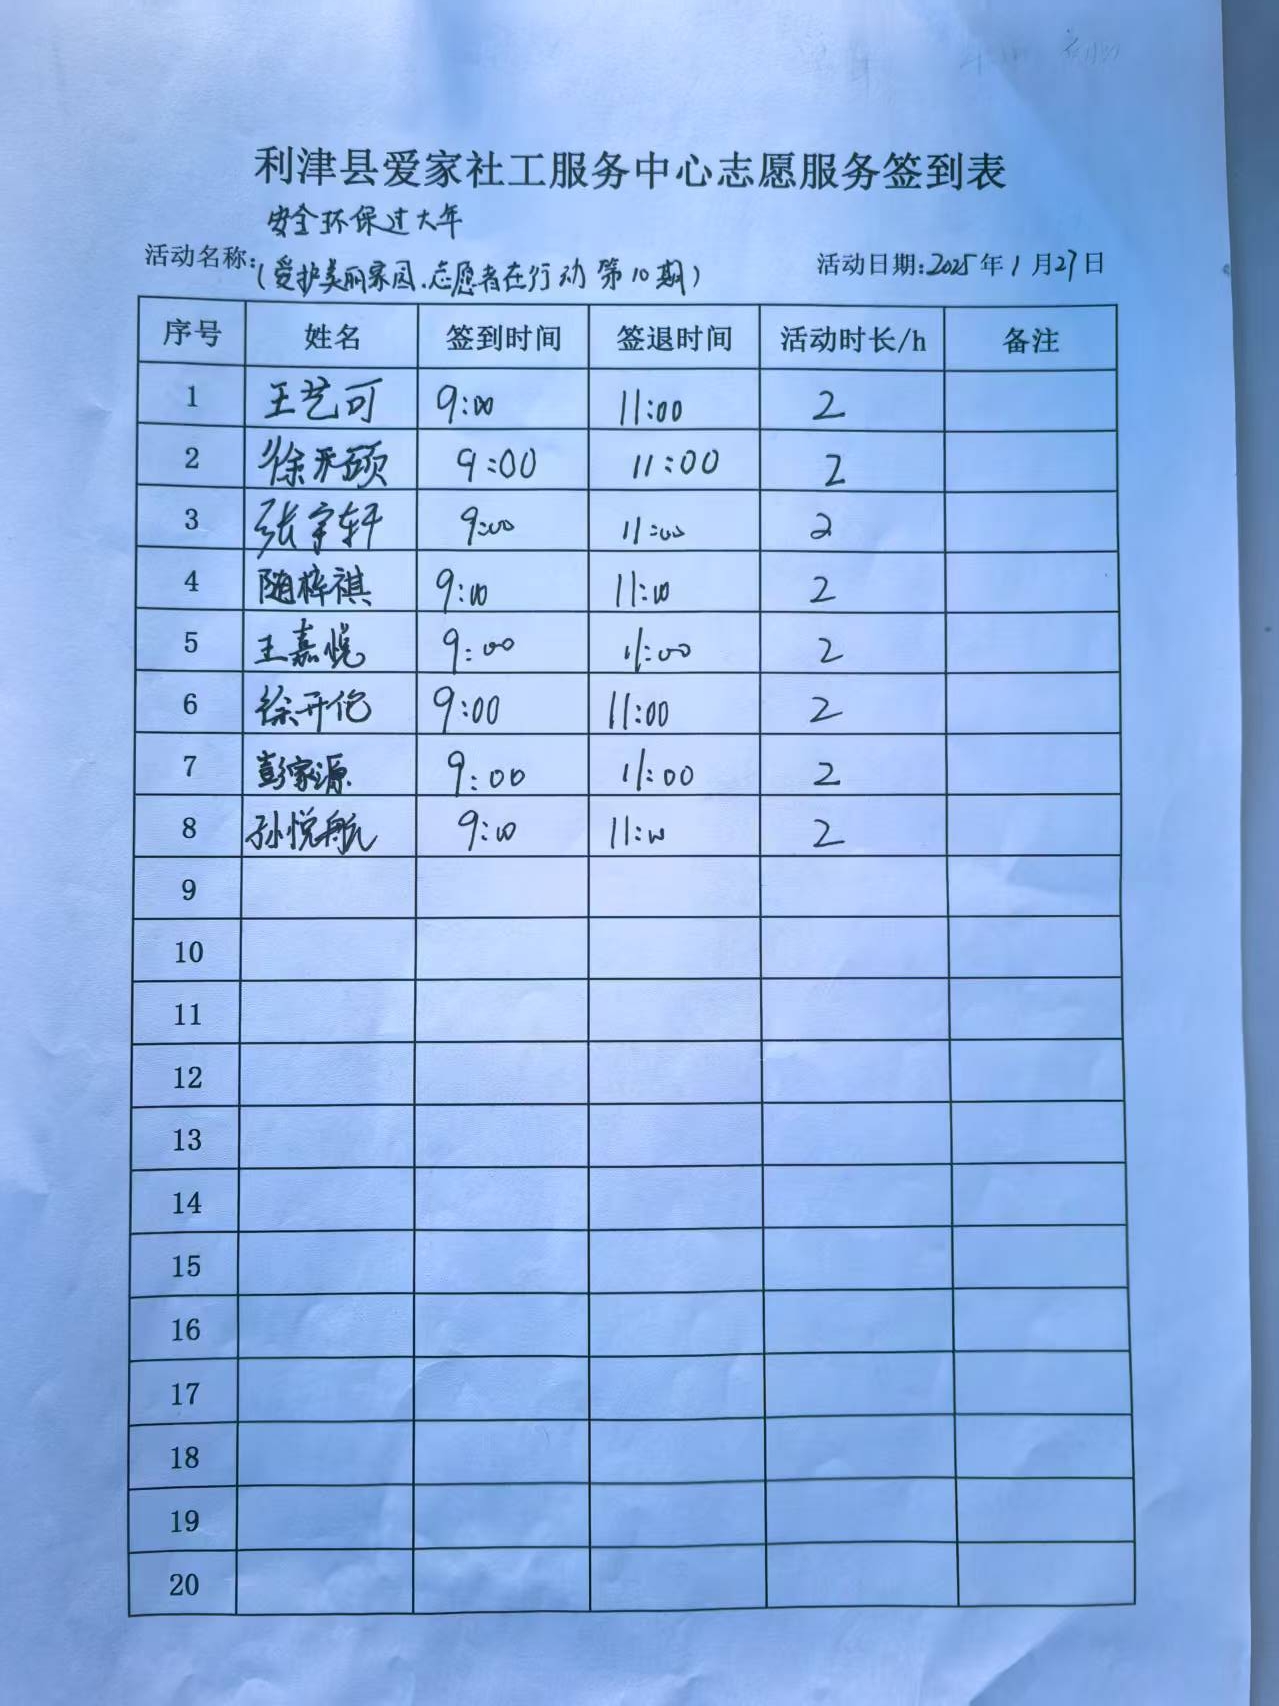 利津县爱家社工服务中心志愿服务签到表
安全环保过大年
活动名称:(爱护美丽家园.志愿者在行动 第10期) 活动日期:2025年1月27日
序号 姓名 签到时间 签退时间 活动时长/h 备注
1 王艺可 9:00 11:00 2
2 徐开硕 9:00 11:00 2
3 张宇轩 9:00 11:00 2
4 随梓祺 9:00 11:00 2
5 王嘉悦 9:00 11:00 2
6 徐开伦 9:00 11:00 2
7 彭家源 9:00 11:00 2
8 孙悦航 9:00 11:00 2
9
10
11
12
13
14
15
16
17
18
19
20